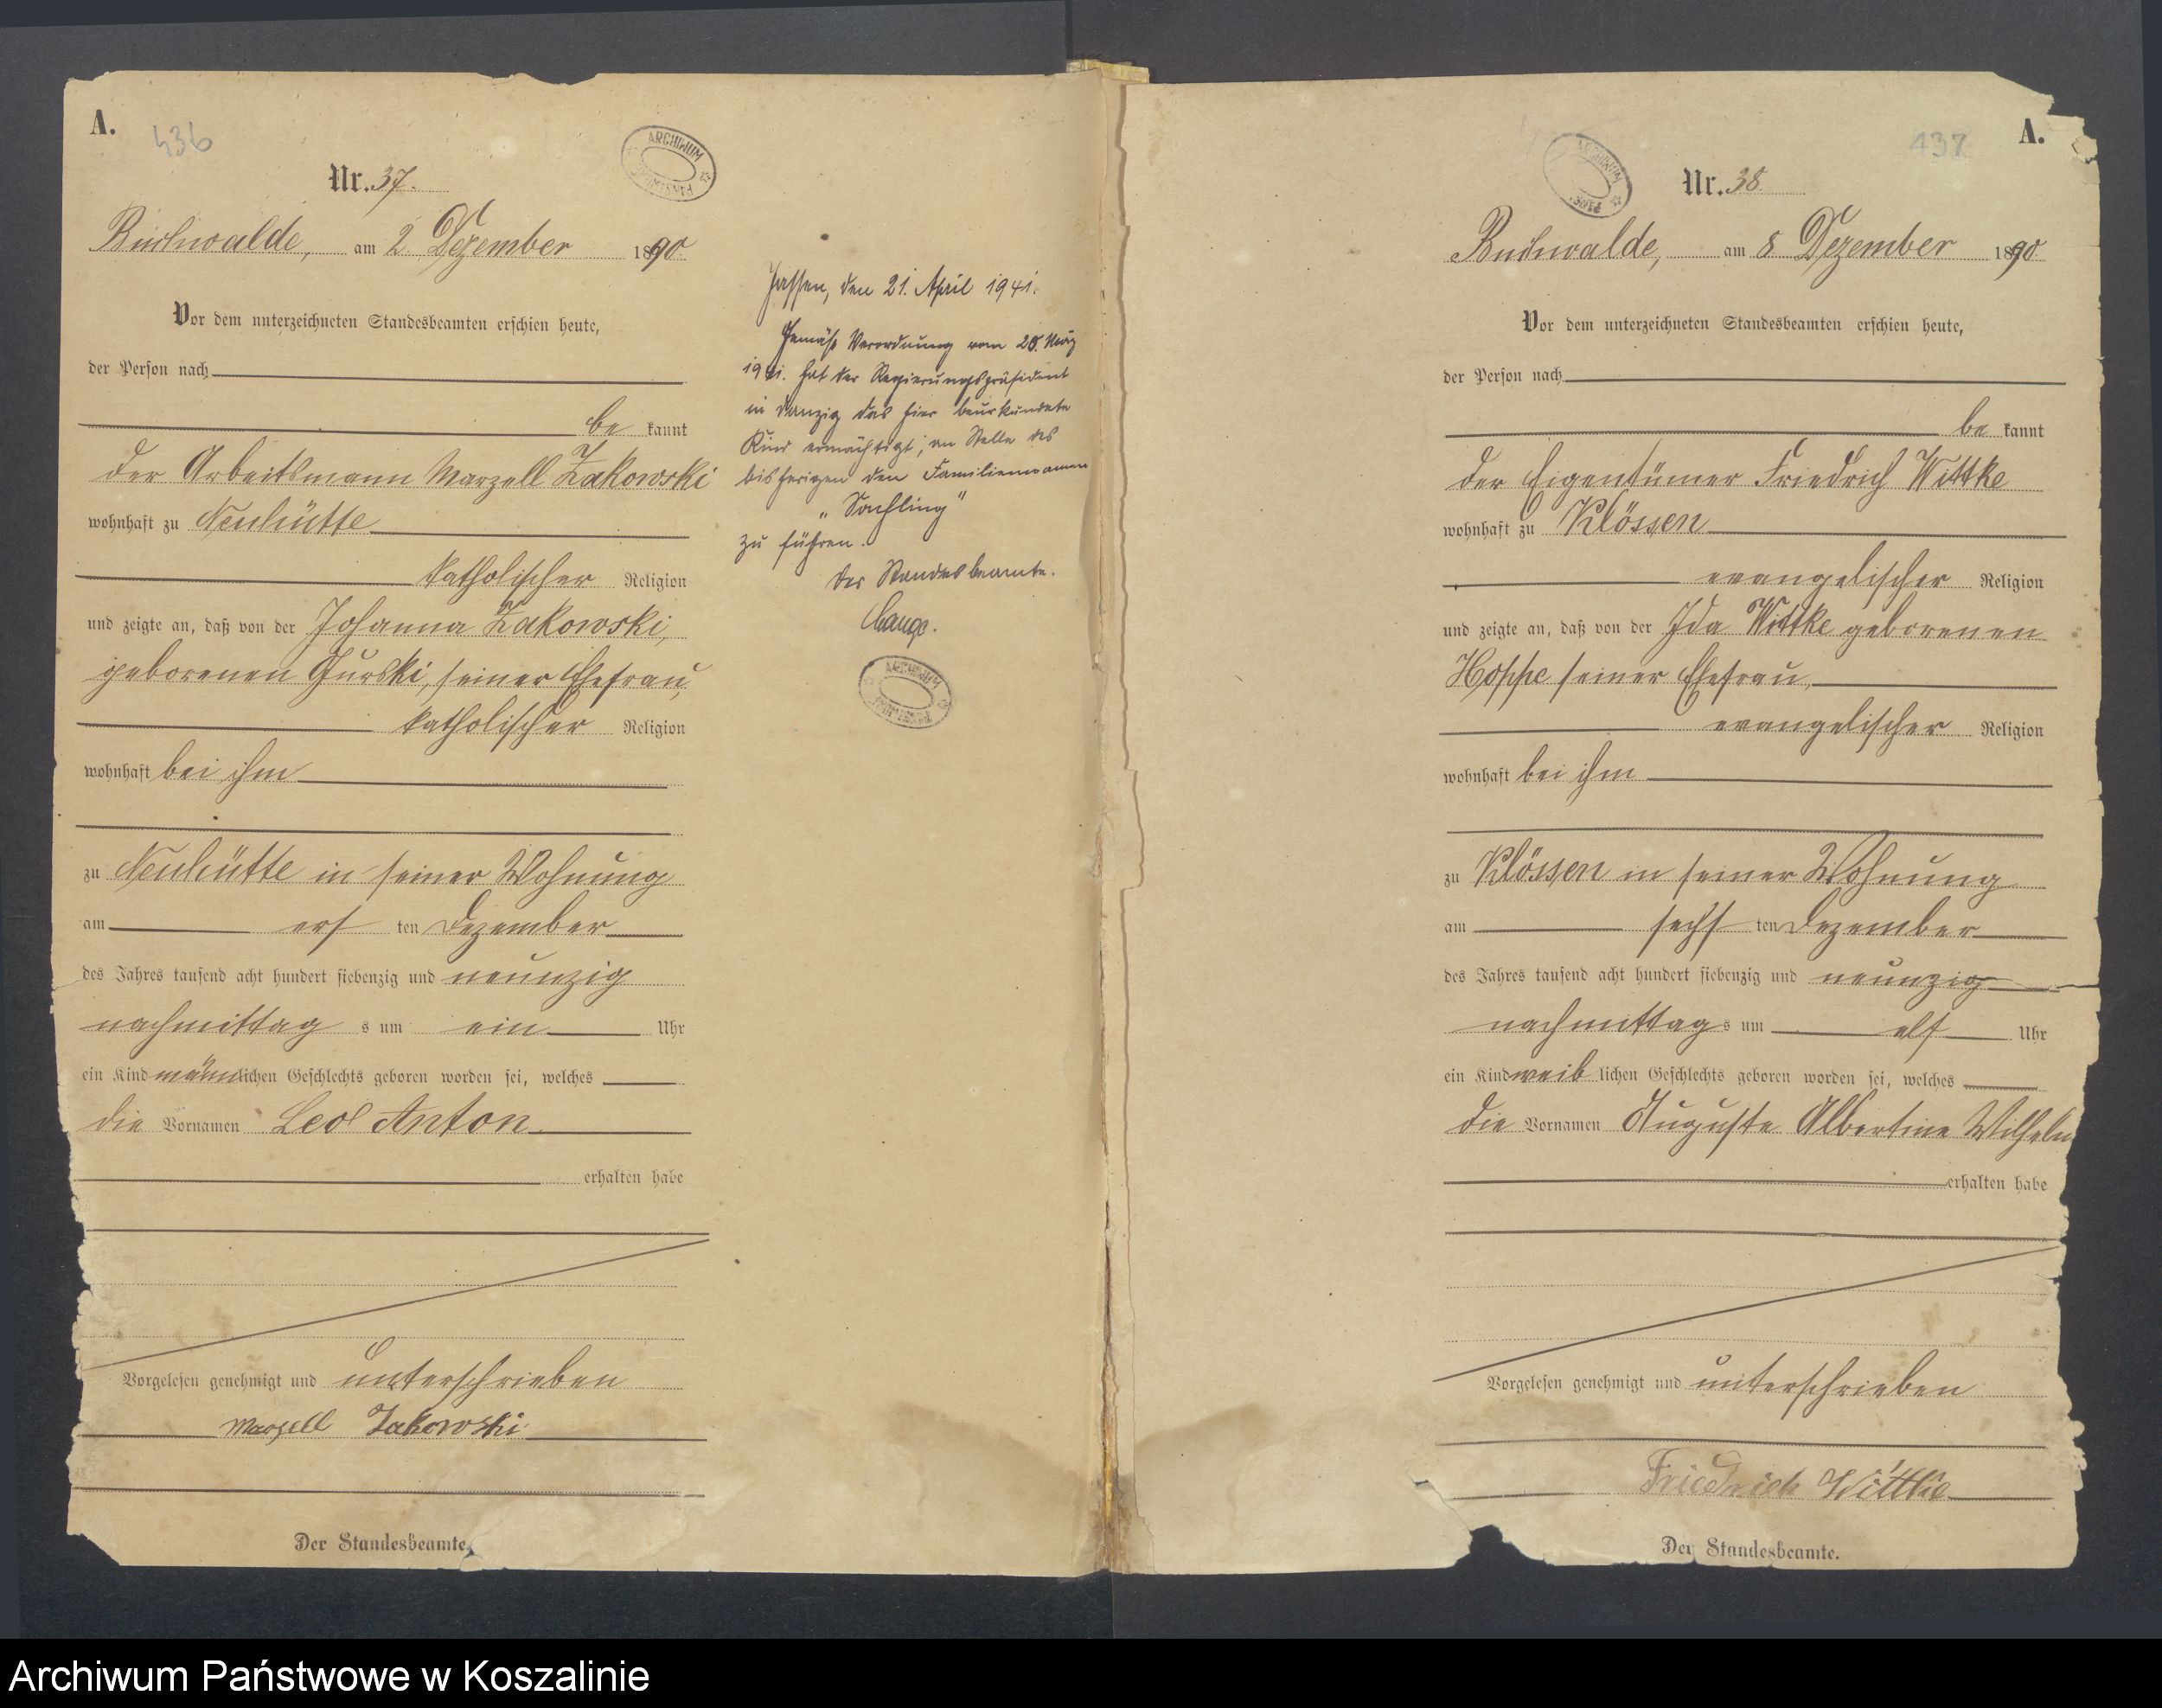 A.
436
Nr. 37.
ARCHIWUM
Buchwalde, am 2. Dezember 1890.
Vor dem unterzeichneten Standesbeamten erschien heute,
der Person nach
be kannt
der Arbeitsmann Marzell Zakowski
wohnhaft zu Neuhütte
katholischer Religion
und zeigte an, daß von der Johanna Zakowski,
geborenen Gurski, seiner Ehefrau,
katholischer Religion
wohnhaft bei ihm
zu Neuhütte in seiner Wohnung
am ers ten Dezember
des Jahres tausend acht hundert siebenzig und neunzig
nachmittag s um ein Uhr
ein Kind männlichen Geschlechts geboren worden sei, welches
die Vornamen Leo Anton
erhalten habe
Vorgelesen genehmigt und unterschrieben
Marzell Zakowski
Der Standesbeamte.
Jassen, den 21. April 1941.
Gemäß Verordnung vom 25. März
1941. hat der Regierungspräsident
in Danzig das hier beurkundete
Kind ermächtigt, an Stelle des
bisherigen den Familiennamen
zu führen.
Der Standesbeamte.
Lange.
ARCHIWUM
A.
437
Nr. 38.
ARCHIWUM
Buchwalde, am 8 Dezember 1890.
Vor dem unterzeichneten Standesbeamten erschien heute,
der Person nach
be kannt
der Eigentümer Friedrich Wittke
wohnhaft zu Klössen
evangelischer Religion
und zeigte an, daß von der Ida Wittke geborenen
Hoppe seiner Ehefrau,
evangelischer Religion
wohnhaft bei ihm
zu Klössen in seiner Wohnung
am sechs ten Dezember
des Jahres tausend acht hundert siebenzig und neunzig
nachmittag s um elf Uhr
ein Kind weib lichen Geschlechts geboren worden sei, welches
die Vornamen Auguste Albertine Wilhelm
erhalten habe
Vorgelesen genehmigt und unterschrieben
Friedrich Wittke
Der Standesbeamte.
Archiwum Państwowe w Koszalinie